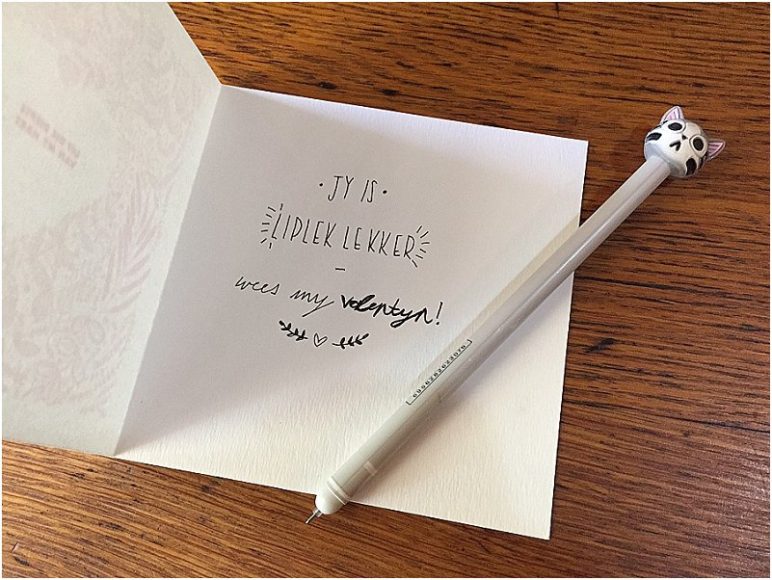 · JY IS ·
LIPLEK LEKKER
–
wees my valentyn!